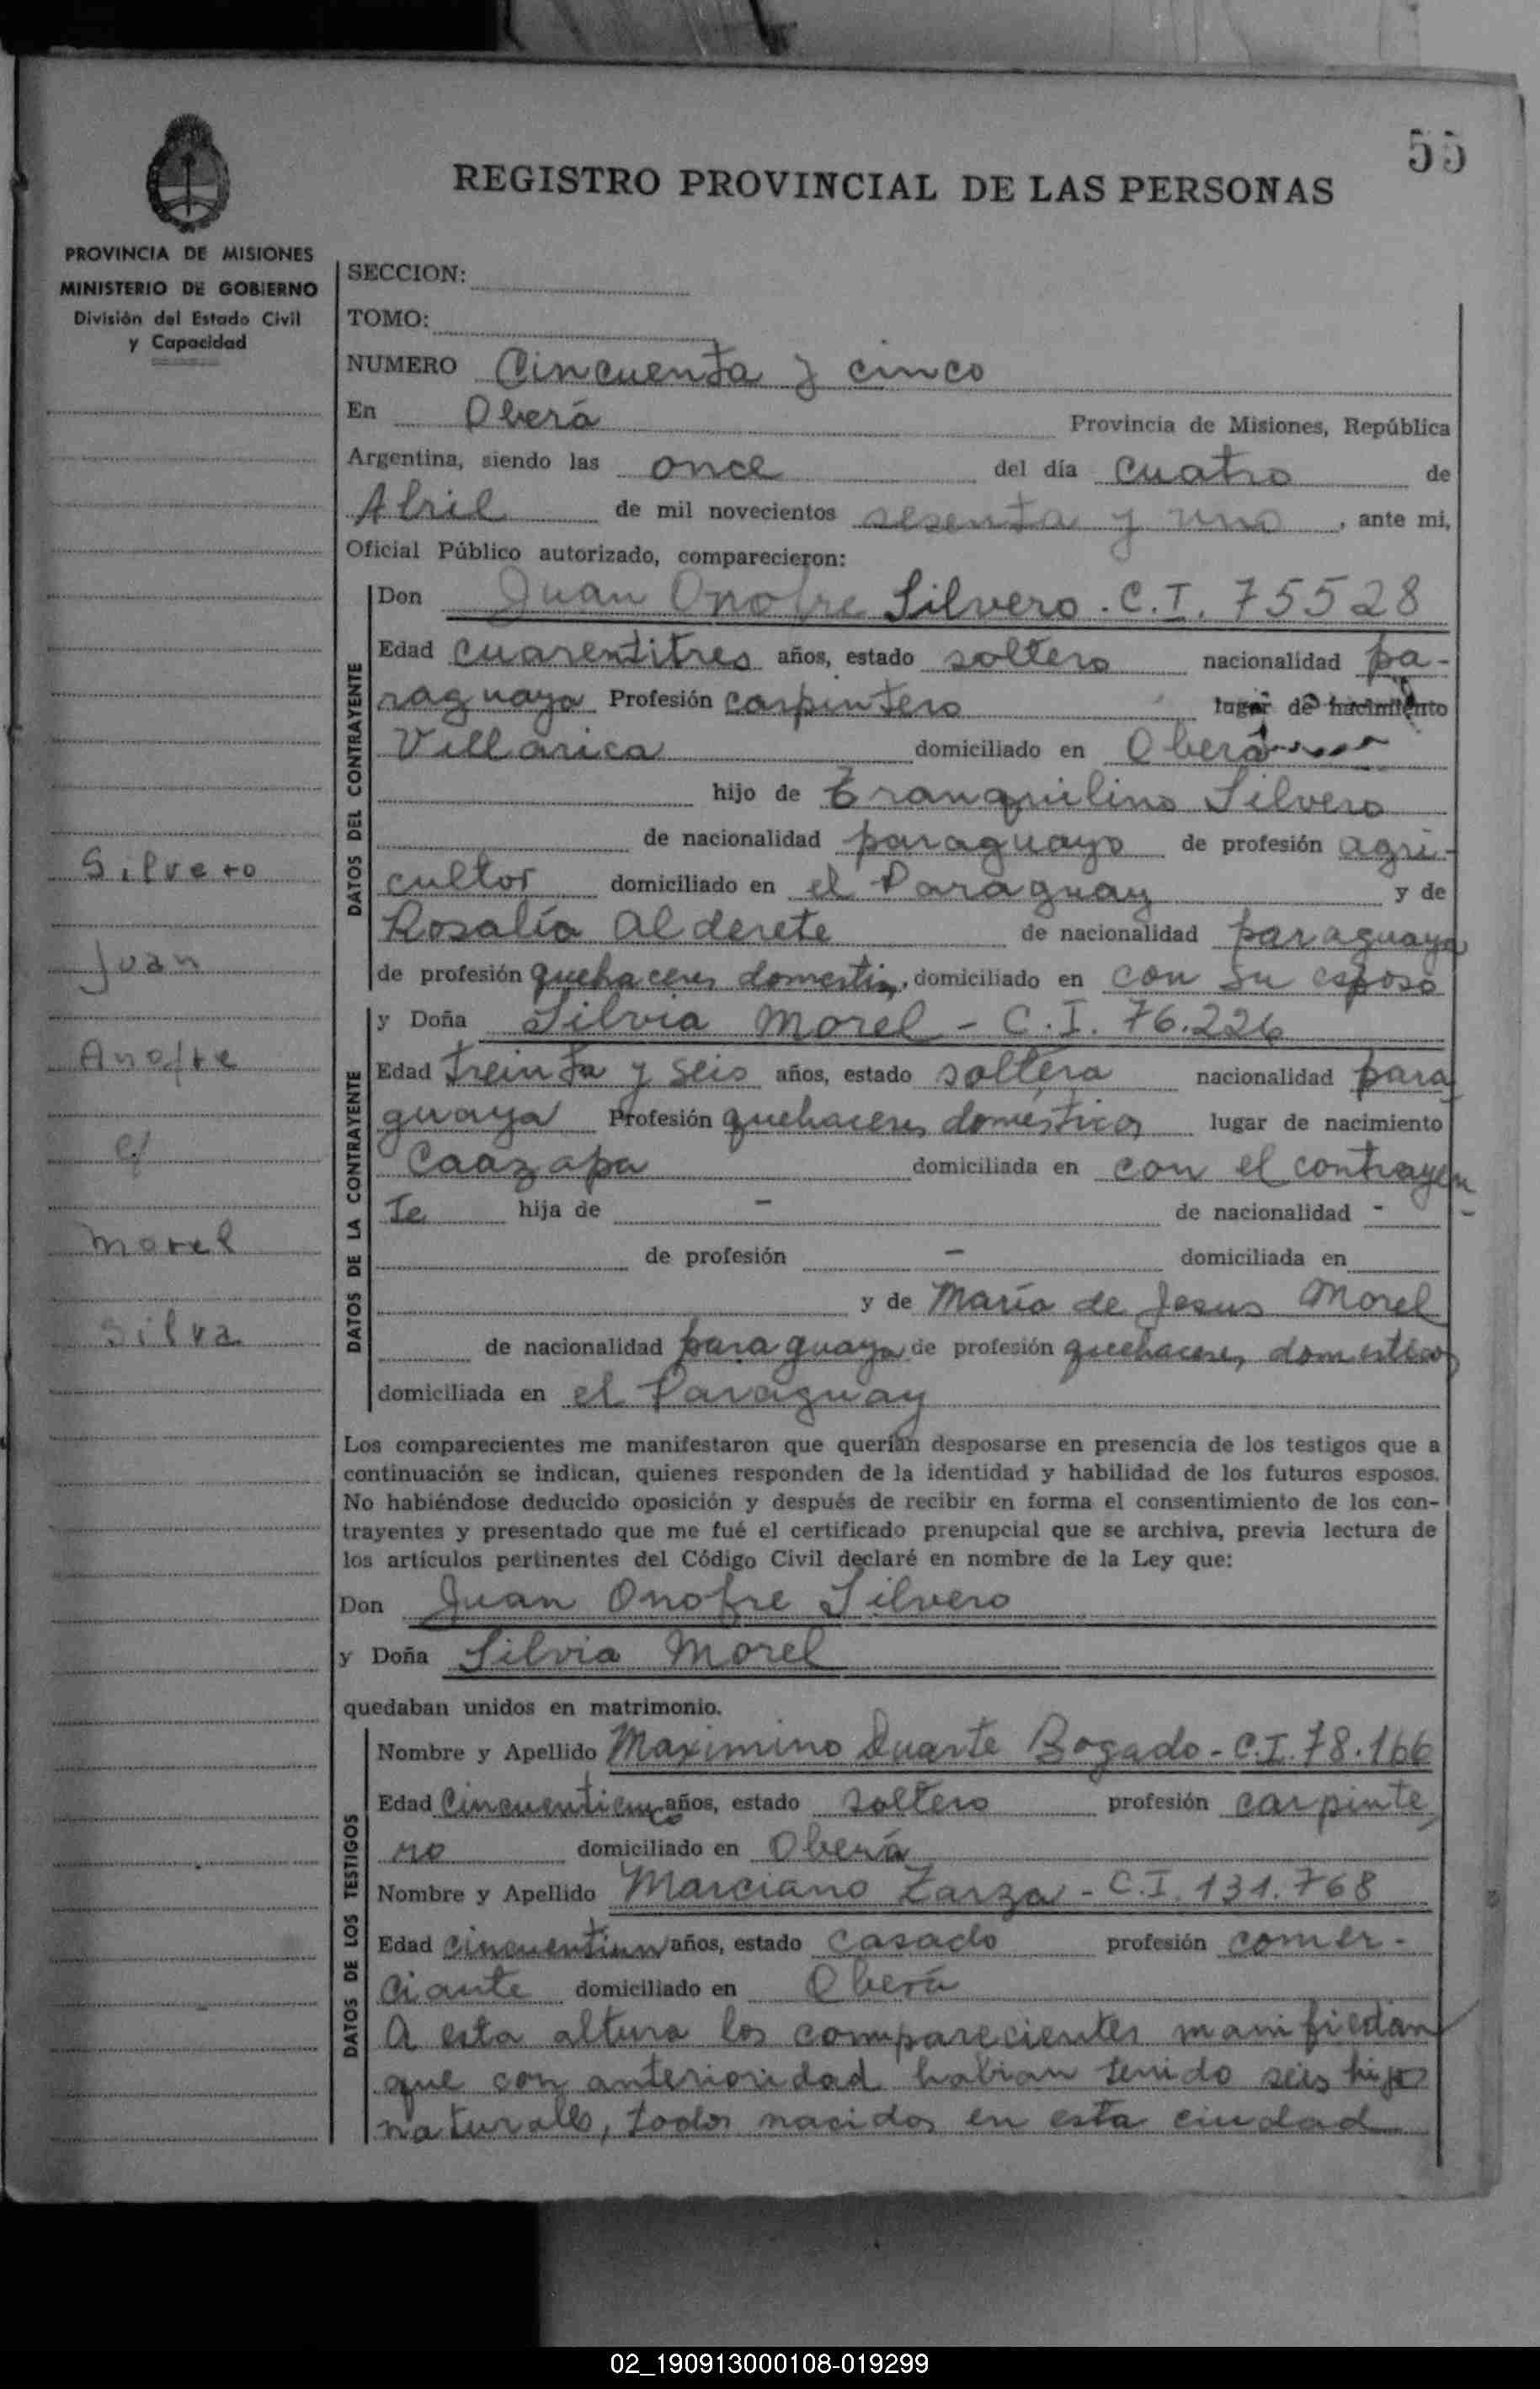 55
REGISTRO PROVINCIAL DE LAS PERSONAS
PROVINCIA DE MISIONES
MINISTERIO DE GOBIERNO
División del Estado Civil
y Capacidad
SECCION:
TOMO:
NUMERO Cincuenta y cinco
En Oberá Provincia de Misiones, República
Argentina, siendo las once del día cuatro de
Abril de mil novecientos sesenta y uno, ante mi,
Oficial Público autorizado, comparecieron:
DATOS DEL CONTRAYENTE
Don Juan Onofre Silvero. C.I. 75528
Edad cuarentitres años, estado soltero nacionalidad pa-
raguaya Profesión carpintero lugar de nacimiento
Villarica domiciliado en Oberá
hijo de Tranquilino Silvero
de nacionalidad paraguayo de profesión agri-
cultor domiciliado en el Paraguay y de
Rosalía Alderete de nacionalidad paraguaya
de profesión quehaceres domestic, domiciliado en con su esposo
DATOS DE LA CONTRAYENTE
y Doña Silvia Morel - C.I. 76.226
Edad treinta y seis años, estado soltera nacionalidad para
guaya Profesión quehaceres domésticos lugar de nacimiento
Caazapa domiciliada en con el contrayen
te hija de - de nacionalidad -
de profesión - domiciliada en
y de María de Jesus Morel
de nacionalidad paraguaya de profesión quehaceres domesticos
domiciliada en el Paraguay
Los comparecientes me manifestaron que querían desposarse en presencia de los testigos que a
continuación se indican, quienes responden de la identidad y habilidad de los futuros esposos.
No habiéndose deducido oposición y después de recibir en forma el consentimiento de los con-
trayentes y presentado que me fué el certificado prenupcial que se archiva, previa lectura de
los artículos pertinentes del Código Civil declaré en nombre de la Ley que:
Don Juan Onofre Silvero
y Doña Silvia Morel
quedaban unidos en matrimonio.
DATOS DE LOS TESTIGOS
Nombre y Apellido Maximino Duarte Bogado - C.I. 78.166
Edad Cincuenticinco años, estado soltero profesión carpinte
ro domiciliado en Oberá
Nombre y Apellido Marciano Zarza - C.I. 131.768
Edad cincuentiun años, estado casado profesión comer-
ciante domiciliado en Oberá
A esta altura los comparecientes manifiestan
que con anterioridad habian tenido seis hijos
naturales, todos nacidos en esta ciudad
Silvero
Juan
Anofre
c/
Morel
Silva
02_190913000108-019299